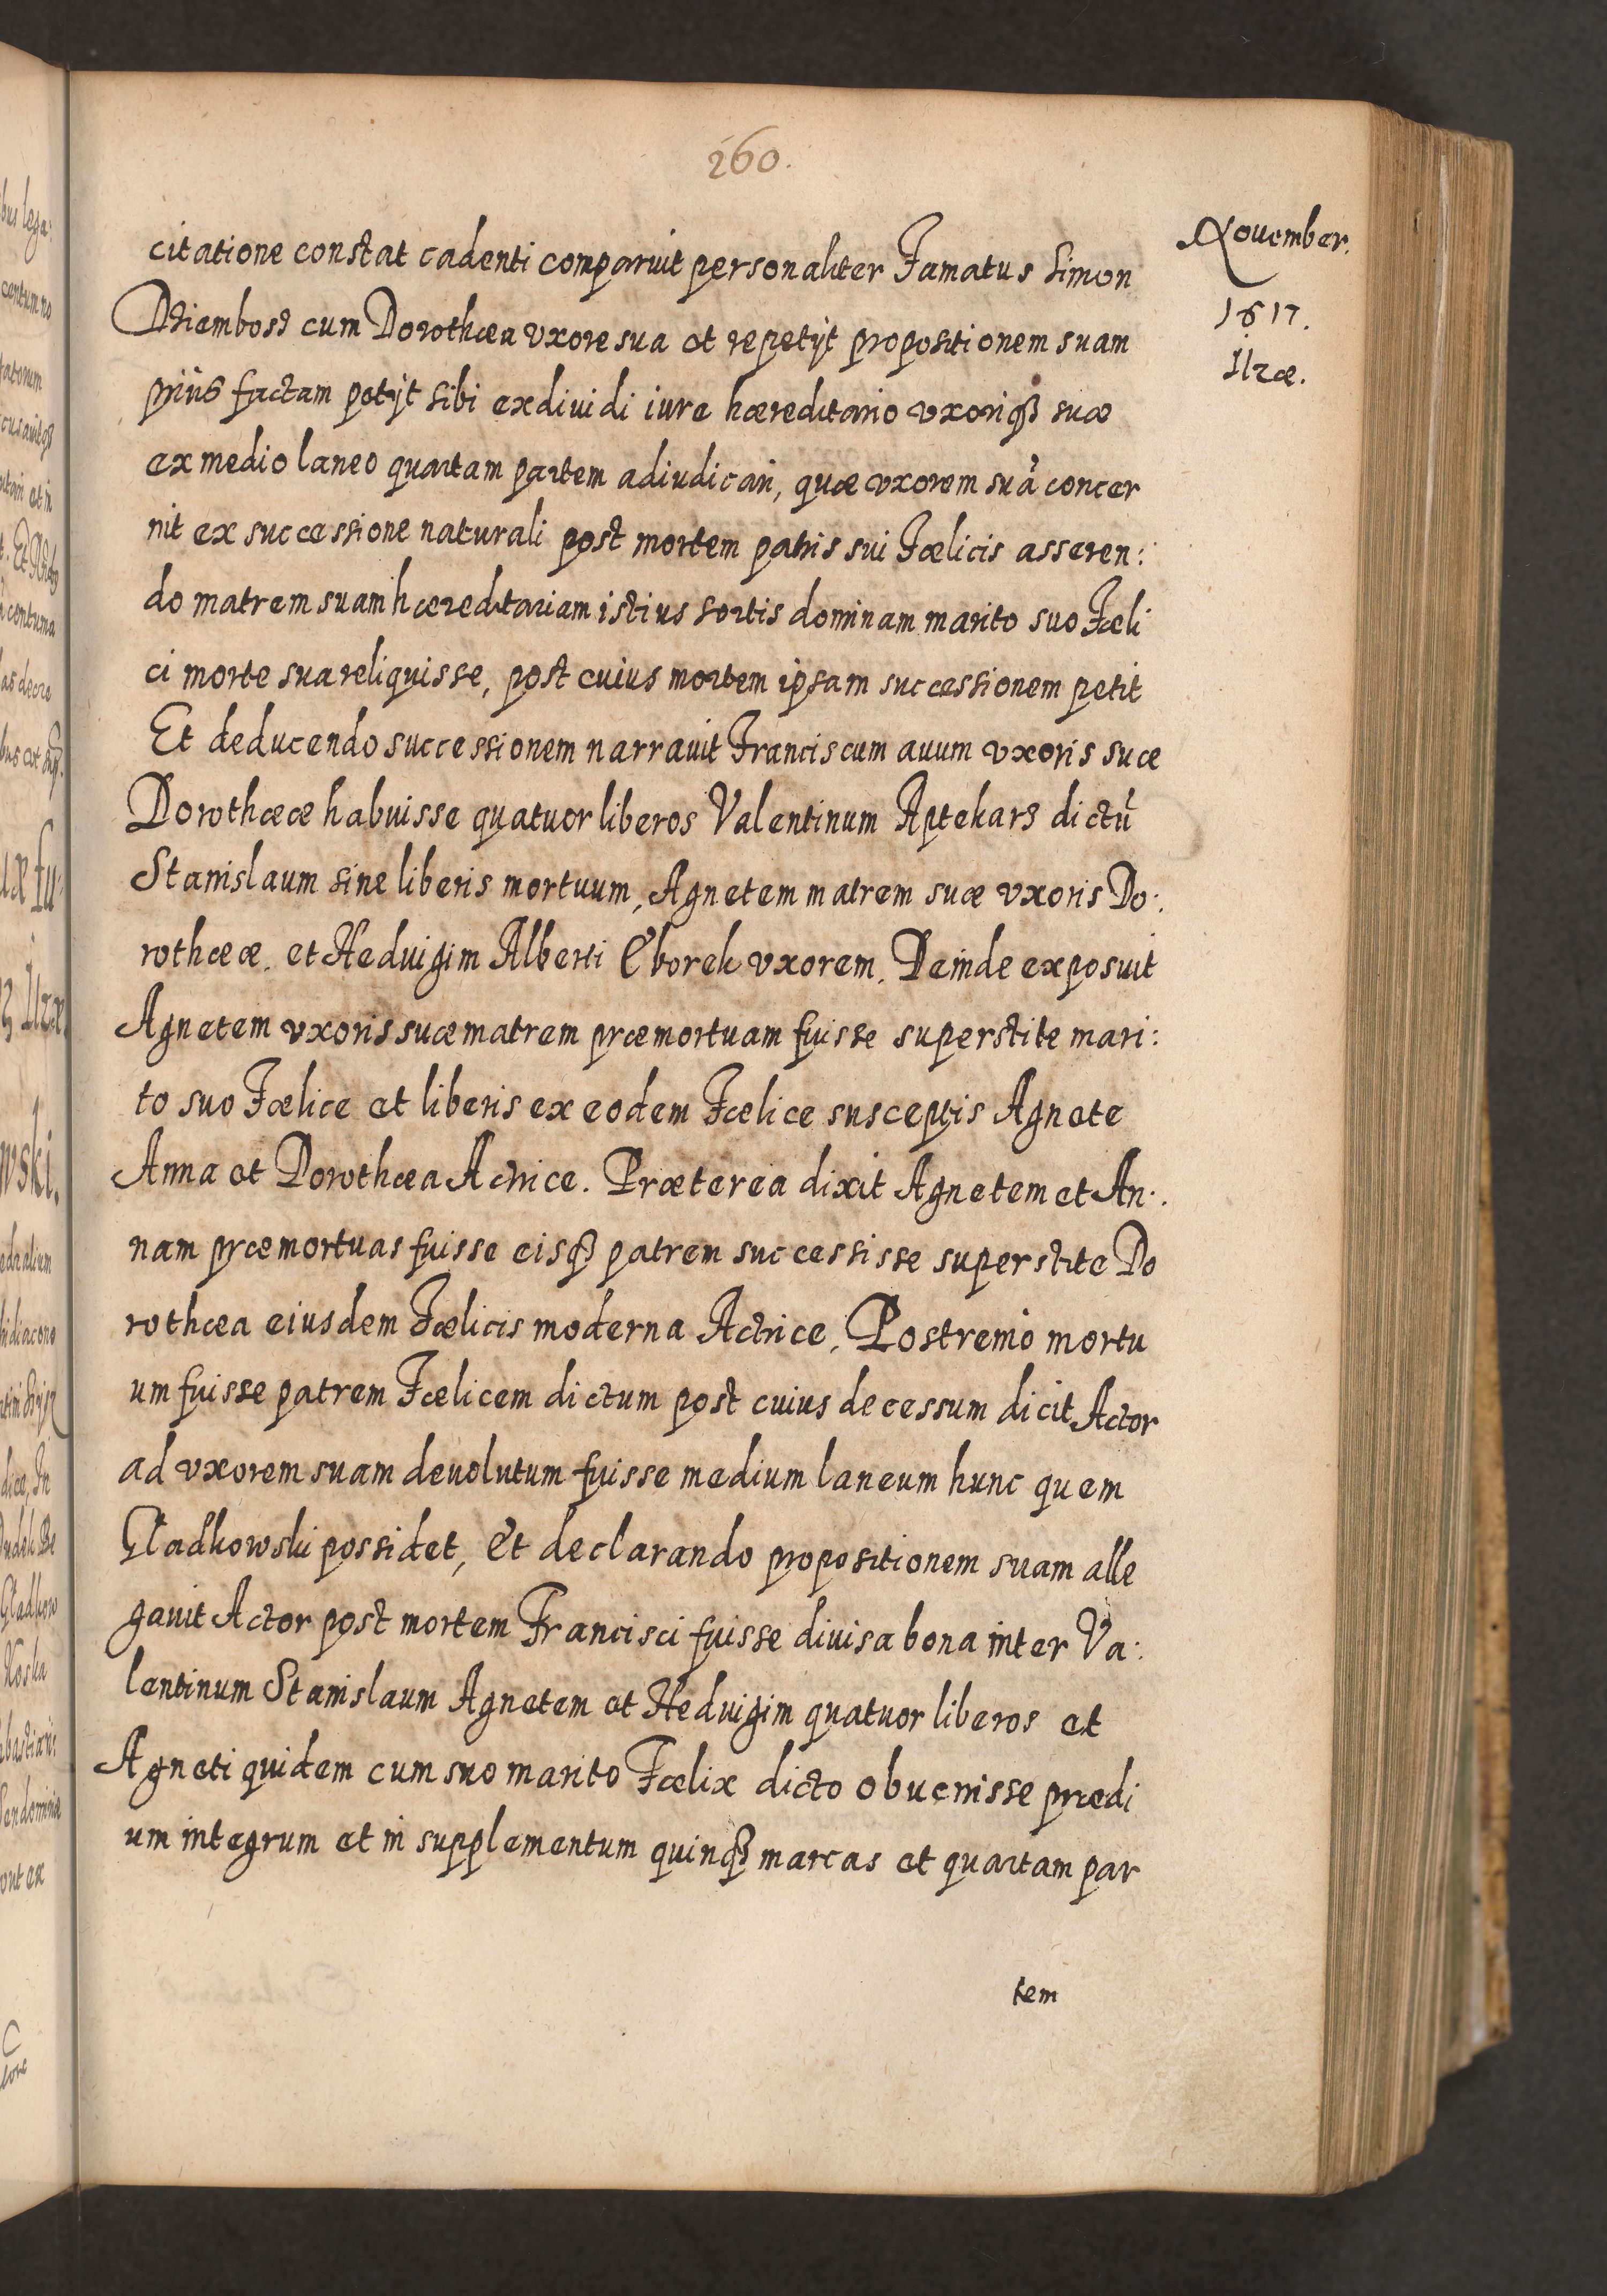 260.
November.
1617.
Ilzæ.
citatione constat cadenti comparuit personaliter Famatus Simon
cum Dorothæa vxore sua et repetijt propositionem suam
prius factam petijt sibi exdiuidi iure hæreditario vxoriqȝ suæ
ex medio laneo quartam partem adiudicari, quæ vxorem suā concer
nit ex successione naturali post mortem patris sui Fœlicis asseren:
do matrem suam hæreditariam istius sortis dominam marito suo Fœli
ci morte sua reliquisse, post cuius mortem ipsam successionem petit
Et deducendo successionem narrauit Franciscum auum vxoris suæ
Dorothææ habuisse quatuor liberos Valentinum Aptekarz dictū
Stanislaum sine liberis mortuum, Agnetem matrem suæ vxoris Do:
rothææ. et Heduigim Alberti vxorem. Deinde exposuit
Agnetem vxoris suæ matrem præmortuam fuisse superstite mari:
to suo Fœlice et liberis ex eodem Fœlice susceptis Agnete
Anna et Dorothæa Actrice. Præterea dixit Agnetem et An:
nam præmortuas fuisse eisqȝ patrem successisse superstite Do
rothæa eiusdem Fœlicis moderna Actrice. Postremò mortu
um fuisse patrem Fœlicem dictum post cuius decessum dicit Actor
ad vxorem suam deuolutum fuisse medium laneum hunc quem
Gladkowski possidet, Et declarando propositionem suam alle
gauit Actor post mortem Francisci fuisse diuisa bona inter Va:
lentinum Stanislaum Agnetem et Heduigim quatuor liberos et
Agneti quidem cum suo marito Fœlix dicto obuenisse prædi
um integrum et in supplementum quinqȝ marcas et quartam par
tem